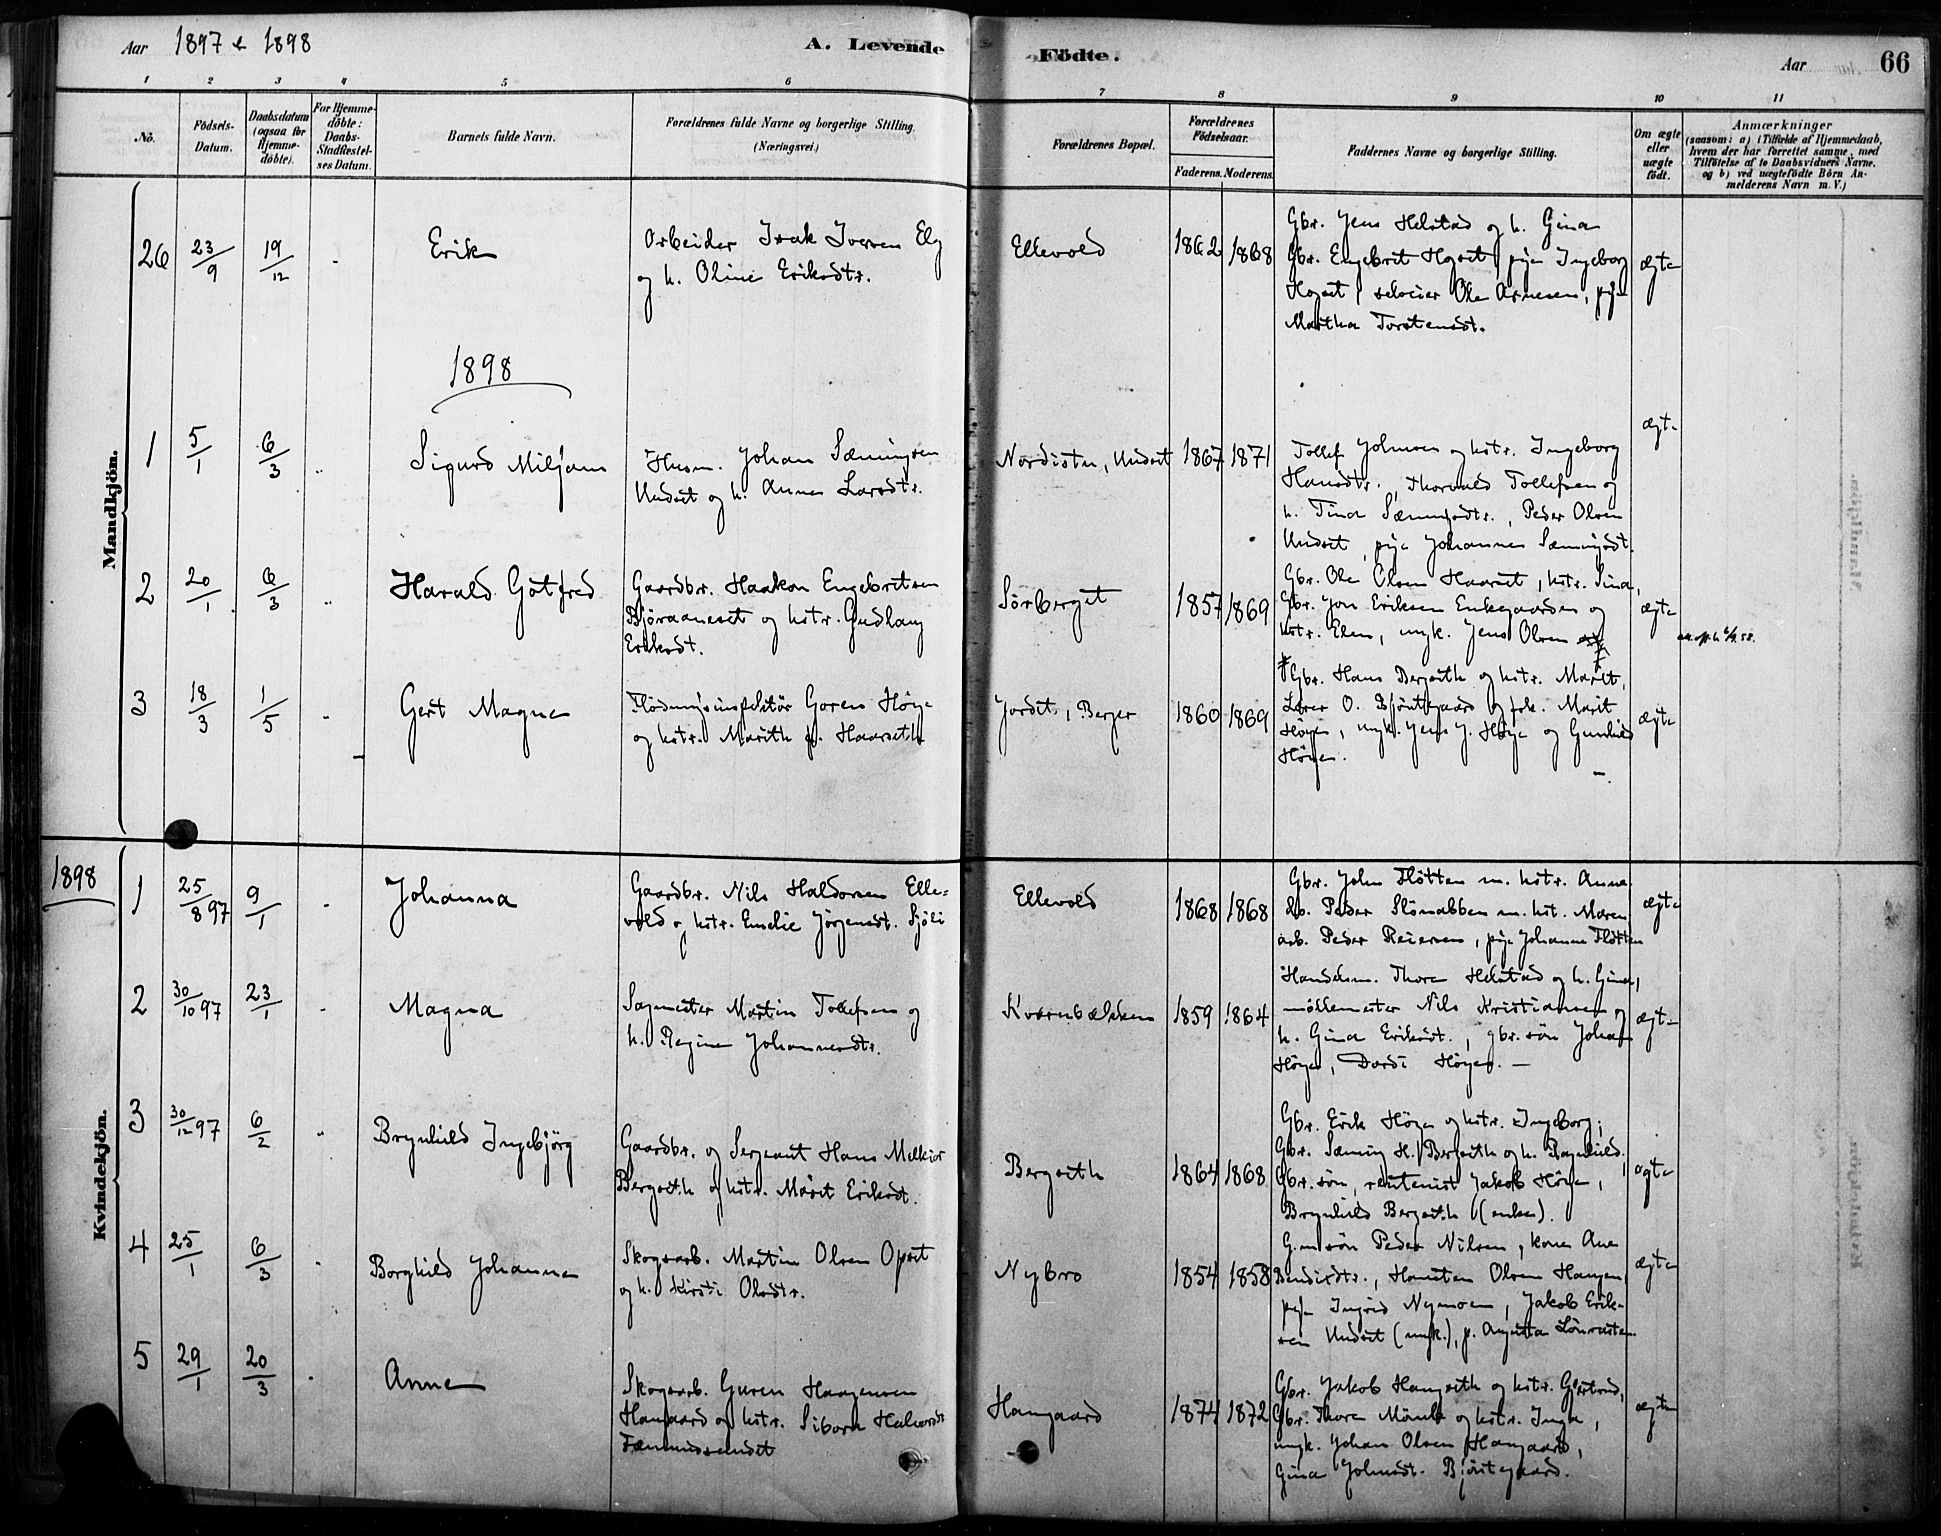 Aar 1897 & 1898
A. Levende
Födte.
Aar
66
1 2 3 4 5 6 7 8 9 10 11
No.
Födsels-
Datum.
Daabsdatum
(ogsaa for
Hjemme-
döbte).
For Hjemme-
döbte:
Daabs-
Stadfæstel-
ses Datum.
Barnets fulde Navn.
Forældrenes fulde Navne og borgerlige Stilling.
(Næringsvei.)
Forældrenes Bopæl.
Forældrenes
Födselsaar.
Faderens. Moderens.
Faddernes Navne og borgerlige Stilling.
Om ægte
eller
uægte
födt.
Anmærkninger
(saasom: a) i Tilfælde af Hjemmedaab,
hvem der har forrettet samme, med
Tilföielse af to Daabsvidners Navne.
og b) ved uægtefödte Börn An-
melderens Navn m. V.)
Mandkjön.
26 23/9 19/12 Erik
Arbeider Isak Iversen Elg
og h. Oline Eriksdtr.
Ellevold 1862 1868
Gbr. Jens Helstad og h. Gina
Gbr. Engebret Hogset, pige Ingeborg
Hogset, selveier Ole Arnesen, pige
Martha Torstensdt.
ægte
1898
1 5/1 6/3 Sigurd Miljam
Husm. Johan Sæmingsen
Undset og h. Anne Larsdtr.
Nordistu, Undset 1867 1871
Tollef Johnsen og hstr. Ingeborg
Hansdtr., Thorvald Tollefsen og
h. Tina Sæmingsdtr., Peder Olsen
Undset, pige Johannes Sæmingsdt.
ægte
2 20/1 6/3 Harald Gotfred
Gaardbr. Haakon Engebretsen
Bjøraaneset og hstr. Gudlaug
Eriksdt.
Sörberget 1857 1869
Gbr. Ole Olsen Haarset, hstr. Sina,
Gbr. Jon Eriksen Enkegaarden og
hstr. Elen, ungk. Jens Olsen
ægte
3 18/3 1/5 Gert Magne
Flödningsinspektör Goren Höye
og hstr. Marith f. Haarseth
Jordet, Berger 1860 1869
Gbr. Hans Bergseth og hstr. Marit,
Lærer O. Bjöntegaard og frk. Marit
Höye, ungk. Jens J. Höye og Gunhild
Höyen.
ægte
1898
Kvindekjön.
1 25/8 97 9/1 Johanna
Gaardbr. Nils Haldorsen Elle-
vold og hstr. Emelie Jörgensdt. Sjöli
Ellevold 1868 1868
Gbr. John Flötten m. hstr. Anna
Peder Slömabben m. hst. Maren
arb. Peder Reiersen, pige Johanne Flötten
ægte
2 30/10 97 23/1 Magna
Sagmester Martin Tollefsen og
h. Regine Johannesdtr.
Kvernbækken 1859 1864
Handelsm. Thore Helstad og h. Gina,
möllemester Nils Kristiansen og
h. Gina Eriksdt., gbr. sön Johan
Höyen, Dordi Höyen. —
ægte
3 30/12 97 6/2 Brynhild Ingebjörg
Gaardbr. og Sergeant Hans Melkior
Bergseth og hstr. Marit Eriksdt.
Bergseth 1864 1868
Gbr. Erik Höye og hstr. Ingeborg;
Gbr. Sæming H. Bergseth og h. Ragnhild.
Gbr. sön, rentenist Jakob Höye,
Brynhild Bergseth (enke).
ægte
4 25/1 6/3 Borghild Johanne
Skogsarb. Martin Olsen Opset
og h. Kirsti Olsdtr.
Nybro 1854 1858
G.m.sön Peder Nilsen, kone Ane
Bendixdtr., Hansten Olsen Haugen,
pige Ingrid Nymoen, Jakob Erik-
sen Undset (ungk.), p. Augusta Lönrusten
ægte
5 29/1 20/3 Anne
Skogsarb. Guren Haagensen
Haugaard og hstr. Sibora Halvorsdt
Fæmundsendet
Haugaard 1874 1872
Gbr. Jakob Haugseth og hstr. Gjertrud,
Gbr. Thore Mömb og hstr. Inga,
ungk. Johan Olsen Haugaard,
Gina Johnsdt. Bjöntegaard.
ægte